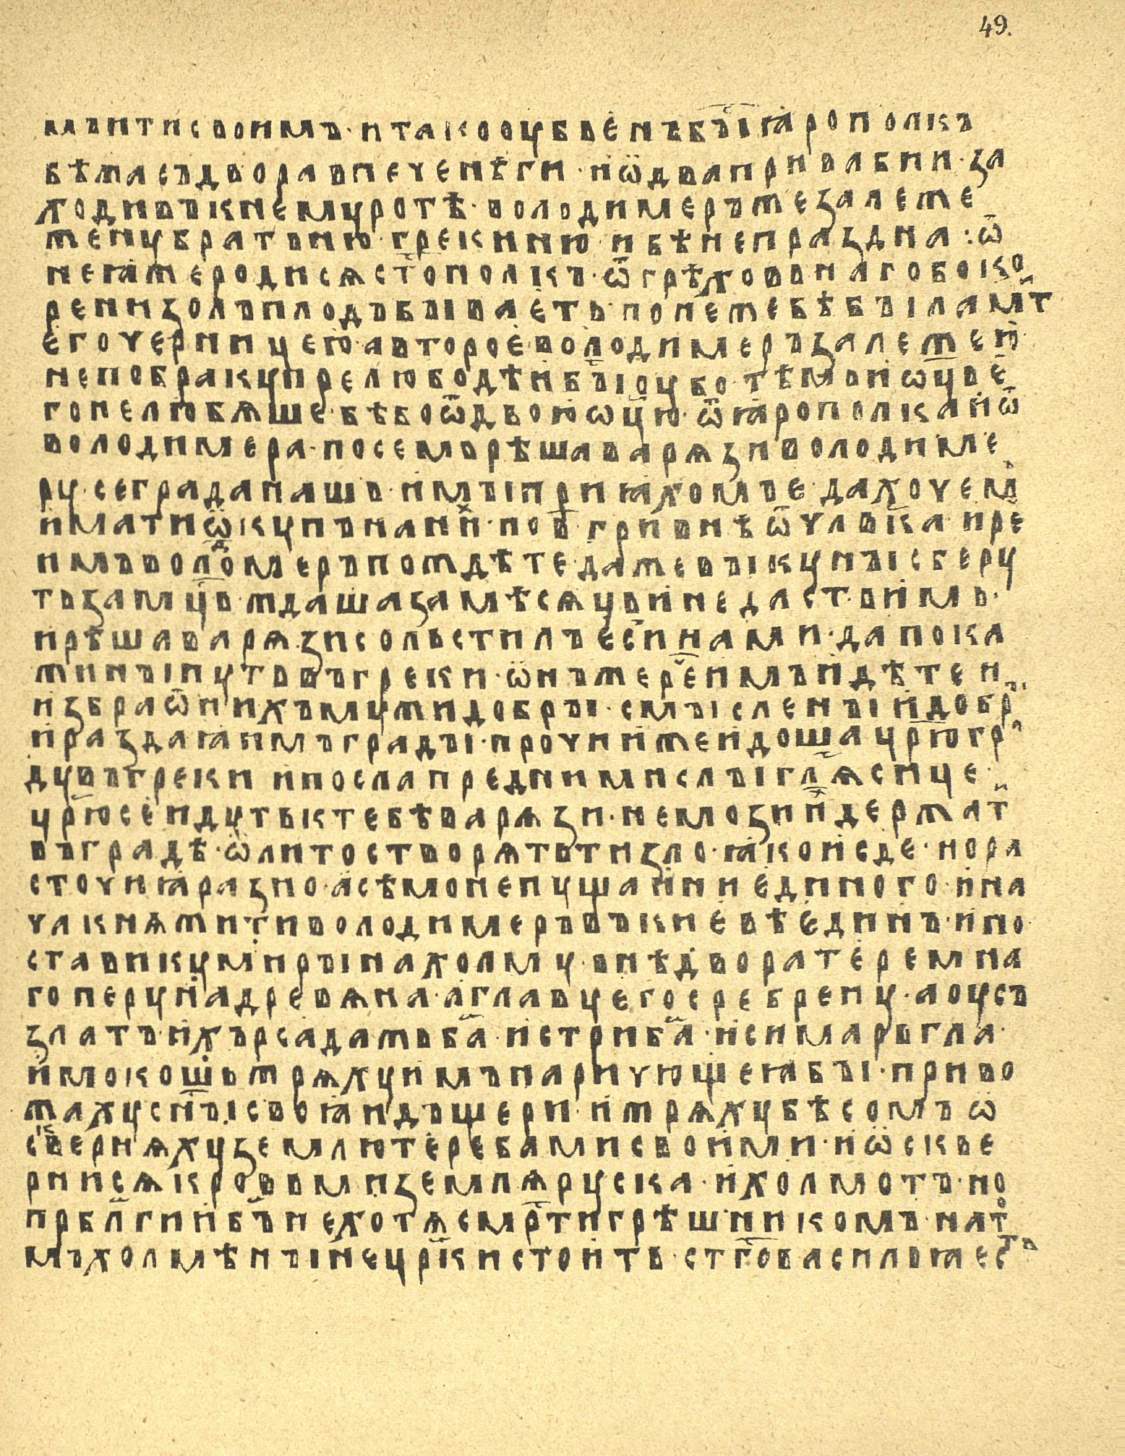 49.
мъити своимъ· и тако оубьенъ бъ꙯і ꙗрополкъ
бѣжа съ двора в печенѣги· и ѿдва приваби и· за
ходивъ к нему ротѣ· володимеръ же залеже
жену братьню грекиню и бѣ непраздна :· ѿ
неꙗже родисѧ ст҃ополкъ· ѿ грѣховьнаго бо ко
рени золъ плодъ бъіваєть понеже бѣ бъіла мт҃и
єго черницею· а второє володимеръ залеже ю
не по браку прелюбодѣи бъ꙯і оубо· тѣмь и ѡц҃ь е
го не люблѧше· бѣ бо ѿ двою ѡц҃ю· ѿ ꙗрополка и ѿ
володимера· посемь рѣша варѧзи володиме
ру· се градъ нашь· и мъі приꙗхомъ е· да хочемъ
имати ѿкупъ на ни҃· по в҃ гривнѣ ѿ чл҃вка· и ре
имъ володимеръ пождѣте· даже въі кунъі сберу
ть за мц҃ь· ждаша за мѣсѧць и не дасть имъ·
и рѣша варѧзи сольстилъ еси нами· да пока
жи нъі путь въ греки· ѡнъ же ре имъ идѣте и
избра ѿ нихъ мужи добръі· смъіслены и добръі
и раздаꙗ имъ градъі· прочии же идоша црю҃гра
ду въ греки и посла пред ними слъі гл҃ѧ сице
црю҃ се идуть к тебѣ варѧзи· не мози и҃ держати
въ градѣ· ѡли то створѧть ти зло· ꙗко и сде· но ра
сточи ꙗ разно· а сѣмо не пущаи ни единого· и на
ча кнѧжити володимеръ въ киевѣ єдинъ· и по
стави кумиръі на холму· внѣ двора теремна
го перуна древѧна· а главу єго сребрену· а оусъ
златъ· и хърса дажьба҃· и стриба҃· и симарьгла·
и мокошь жрѧху имъ наричюще ꙗ бъі· приво
жаху сн҃ъі своꙗ и дъщери· и жрѧху бѣсомъ ѡ
сквернѧху землю теребами своими· и ѡскве
рнисѧ кровьми землѧ руска· и холмотъ· но
прб҃лгии б҃ъ не хотѧ смр҃ти грѣшникомъ· на то
мъ холмѣ нъінѣ цр҃ки стоить· ст҃го василꙗ єсть